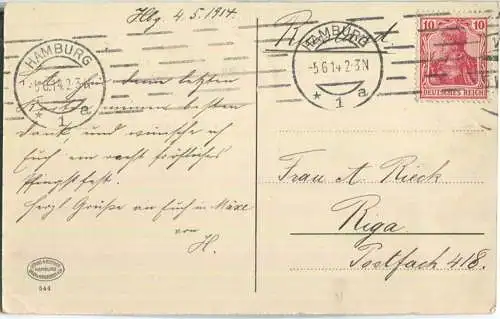 Hbg 4.5.1914.
HAMBURG
-5.6.14 2-3 N
* 1 a
HAMBURG
-5.6.14 2-3 N
* 1 a
10 10
DEUTSCHES REICH
den letzten
besten
Dank, und wünsche ich
Euch ein recht fröhliches
Pfingstfest.
Herzl. Grüße an Euch u. Mäxe
von
H.
Frau A. Rieck
Riga
Postfach 418.
HAMBURG
544